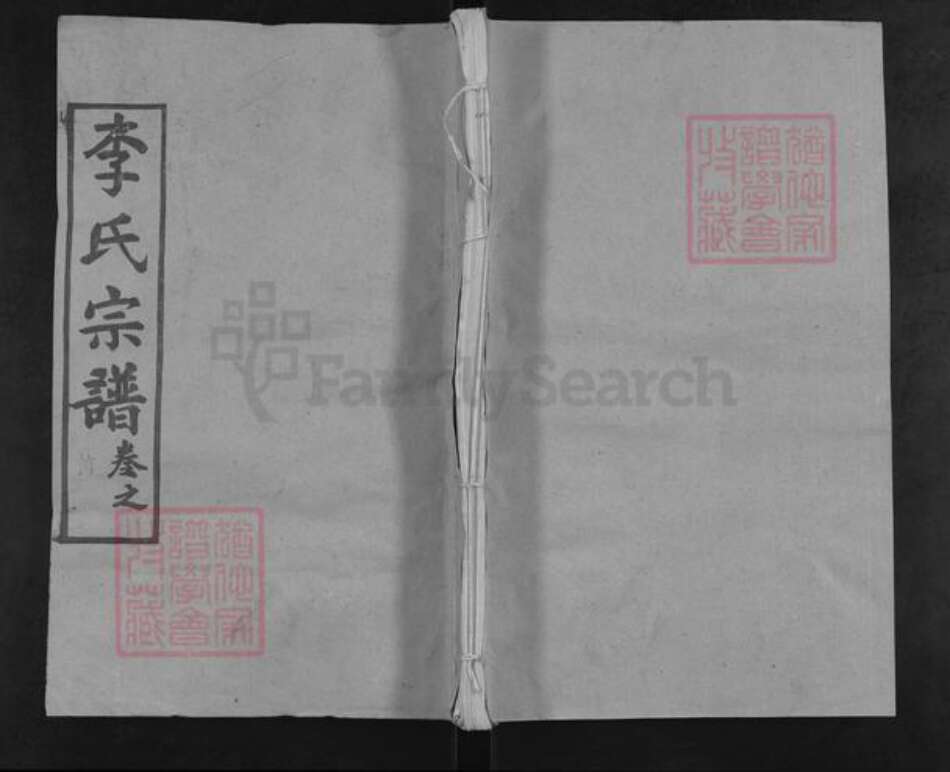 李氏宗譜
卷之
FamilySearch
猶他家
譜學會
珍藏
猶他家
譜學會
珍藏